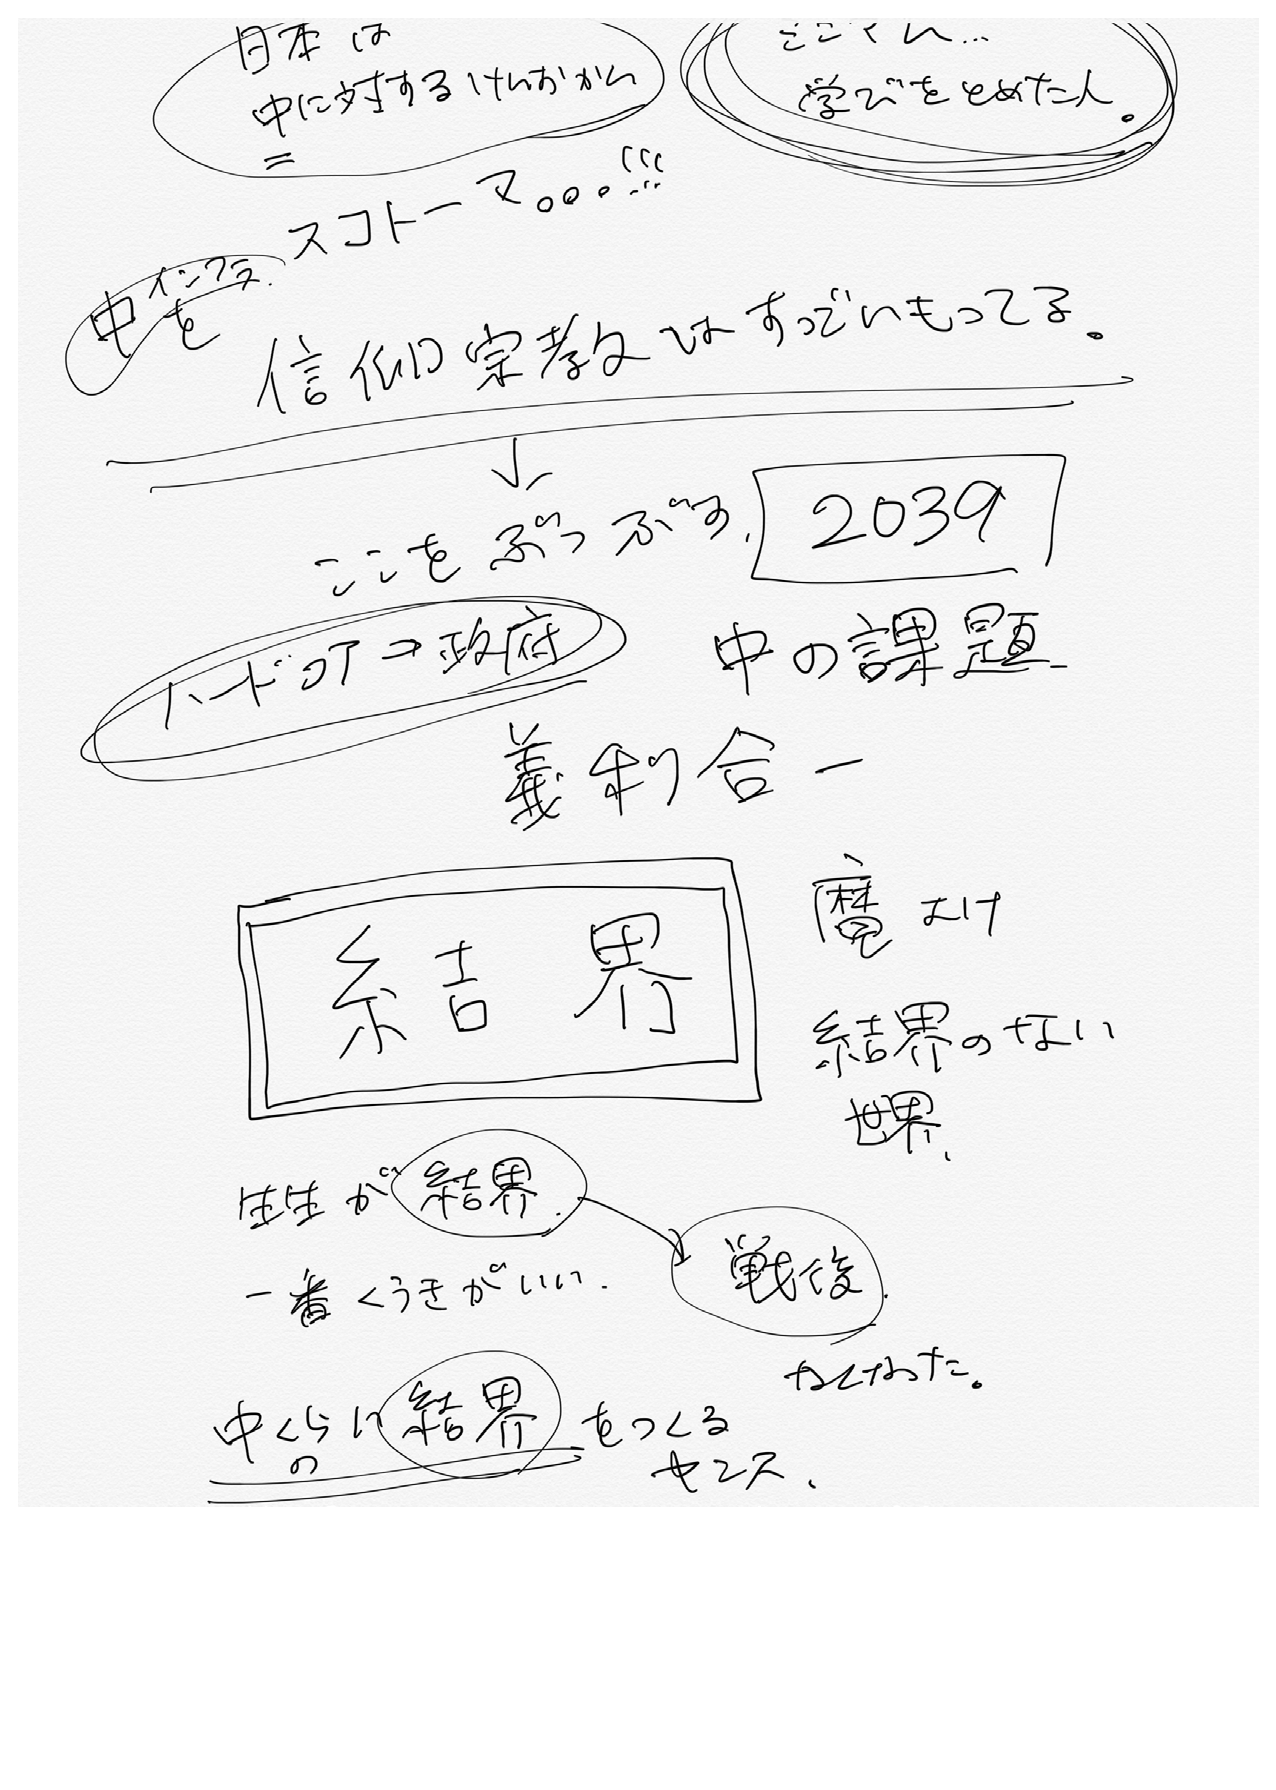 日本は
中に対するけんおかん
=
学びをとめた人。
スコトーマ。。。!!!
中インフラを
信仰宗教はすっごいもってる。
↓
ここをぶっつぶす、
2039
ハードコア→政府
中の課題
義利合一
結界
魔よけ
結界のない
世界、
生生が結界.
一番くうきがいい.
戦後.
なくなった。
中くらいの結界をつくる
センス、